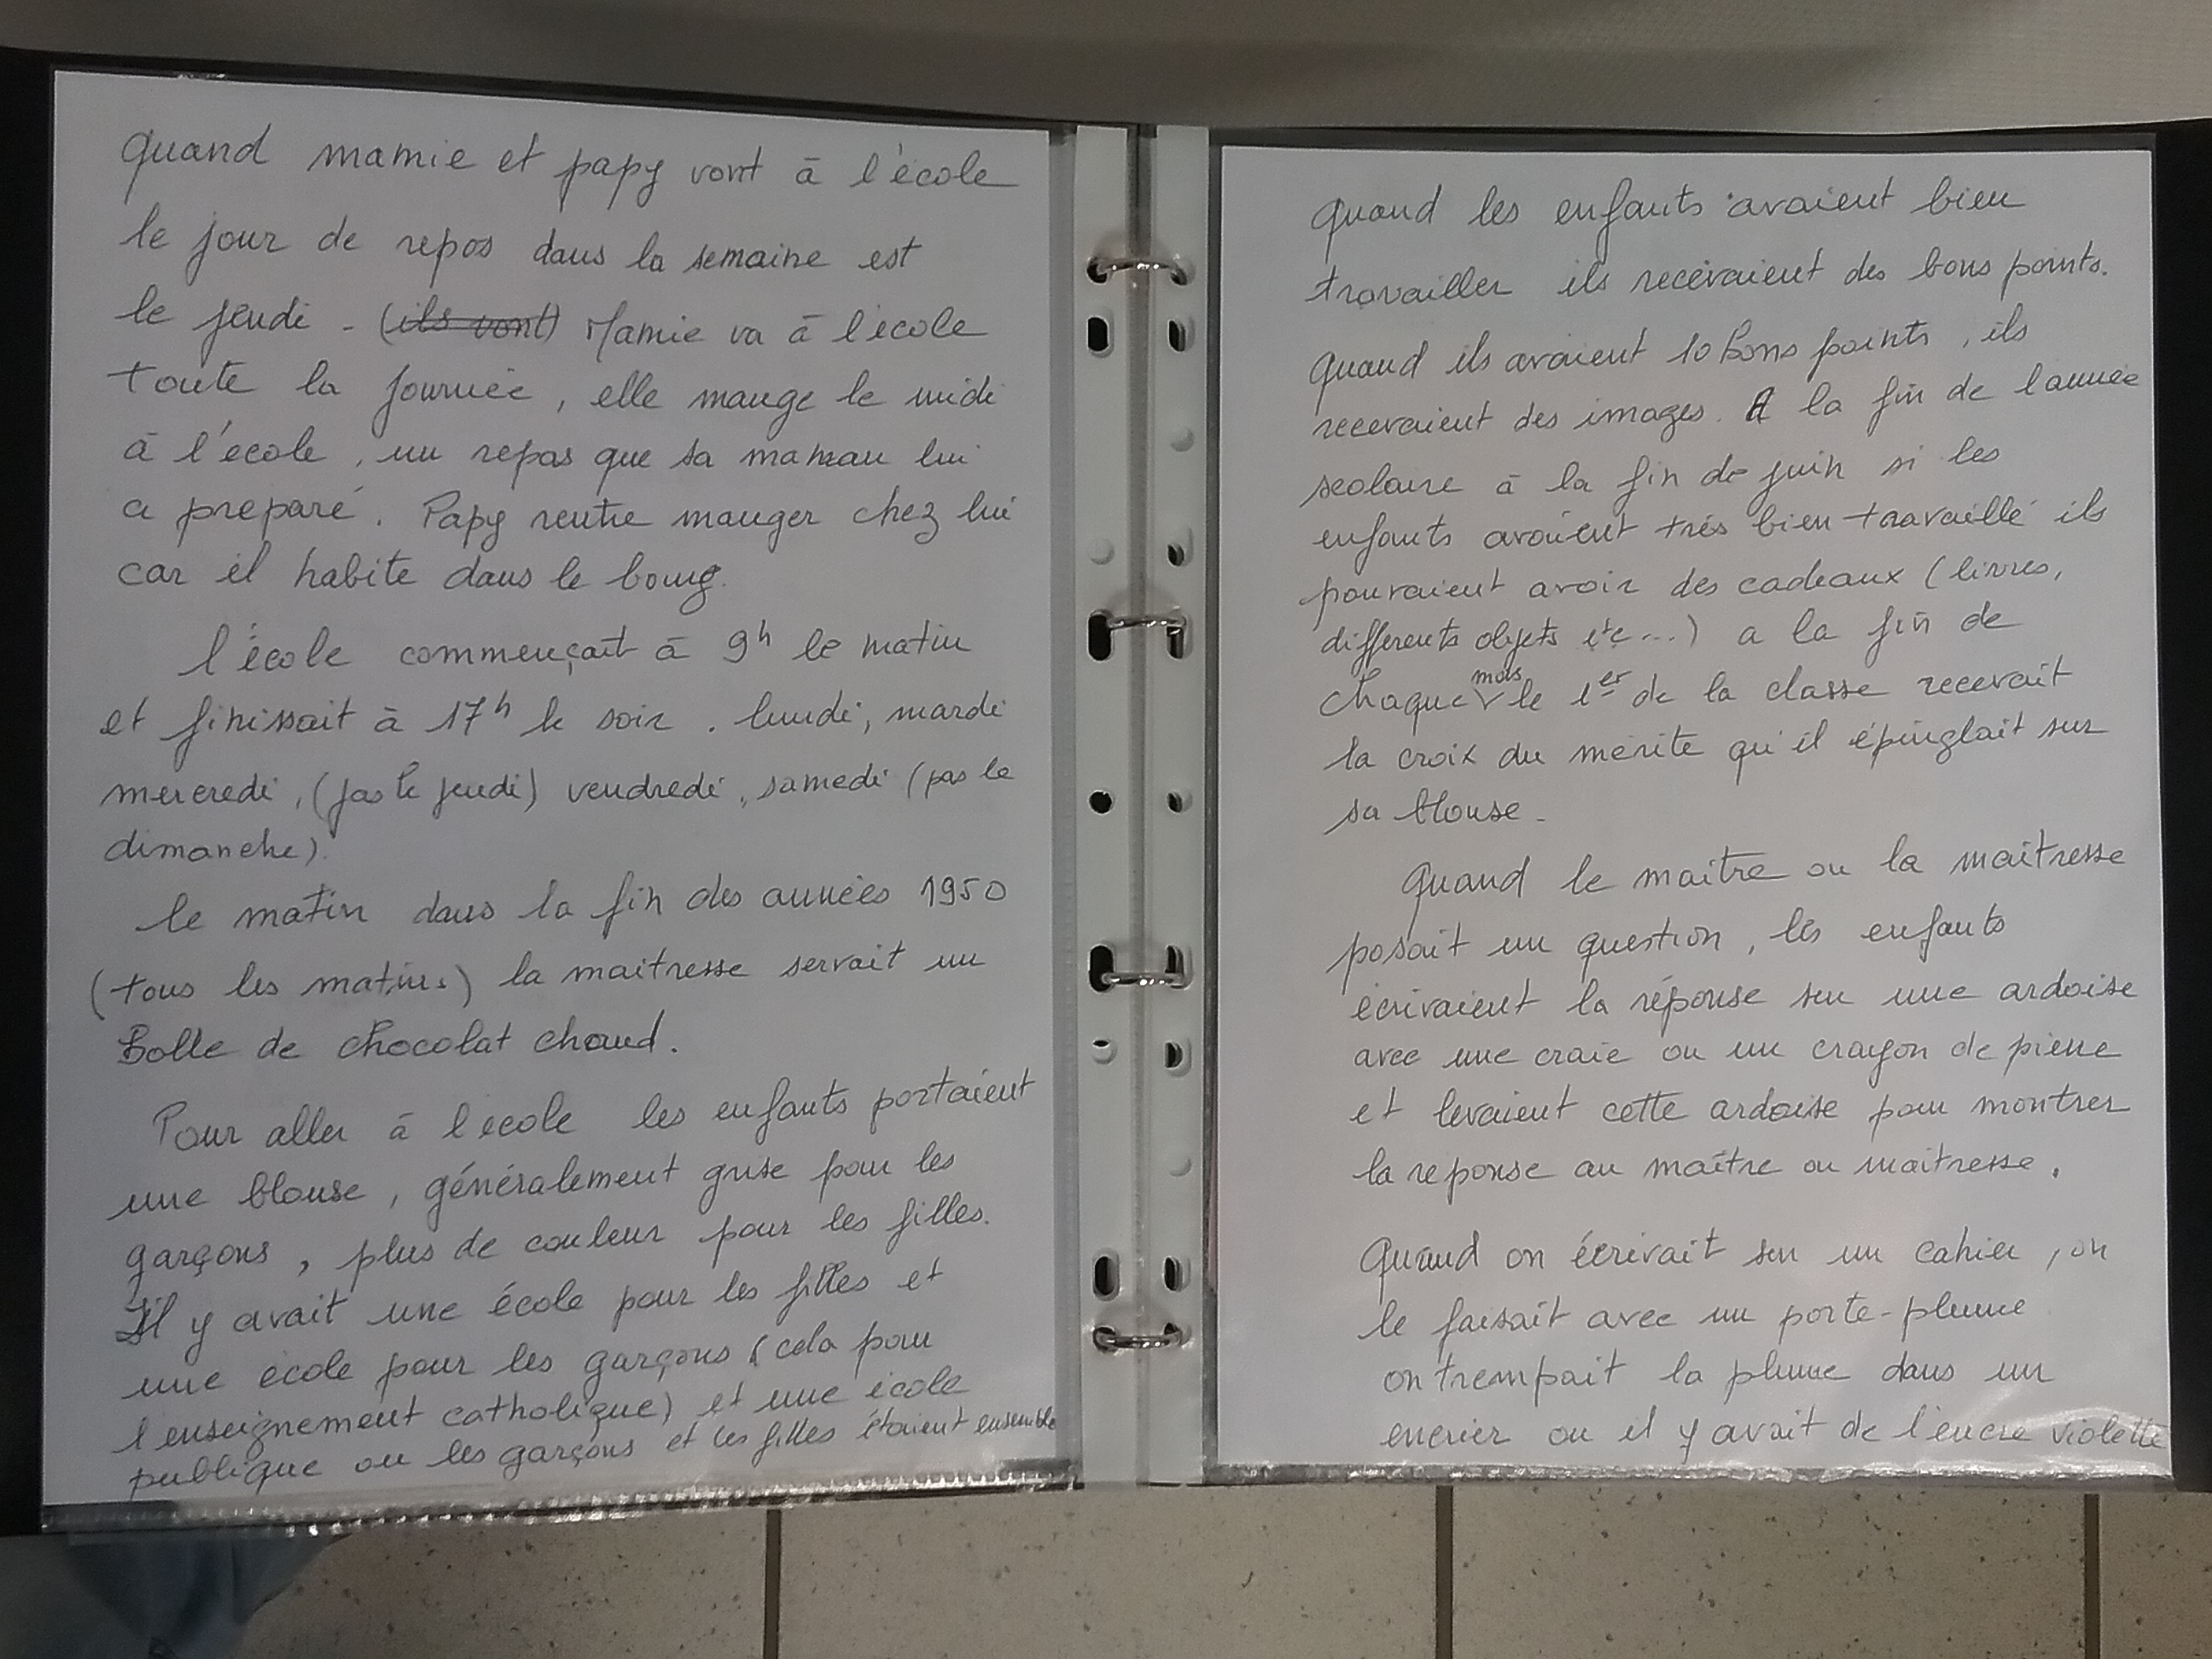 Quand mamie et papy vont à l'école
le jour de repos dans la semaine est
le jeudi - (ils vont) Mamie va à l'école
toute la journée, elle mange le midi
à l'école, un repas que sa maman lui
a preparé. Papy rentre manger chez lui
car il habite dans le bourg.
l'école commençait à 9h le matin
et finissait à 17h le soir. lundi, mardi
mercredi, (pas le jeudi) vendredi, samedi (pas le
dimanche).
le matin dans la fin des années 1950
(tous les matins) la maitresse servait un
Bolle de chocolat chaud.
Pour aller à l'école les enfants portaient
une blouse, généralement grise pour les
garçons, plus de couleur pour les filles.
Il y avait une école pour les filles et
une école pour les garçons (cela pour
l'enseignement catholique) et une école
publique ou les garçons et les filles étaient ensemble
Quand les enfants avaient bien
travailler ils recevaient des bons points.
Quand ils avaient 10 bons points, ils
recevaient des images. A la fin de l'année
scolaire à la fin de juin si les
enfants avaient très bien travaillé ils
pouvaient avoir des cadeaux (livres,
differents objets etc...) a la fin de
chaque mois le 1er de la classe recevait
la croix du mérite qu'il épinglait sur
sa blouse -
Quand le maitre ou la maitresse
posait un question, les enfants
écrivaient la réponse sur une ardoise
avec une craie ou un crayon de pierre
et levaient cette ardoise pour montrer
la reponse au maître ou maitresse.
Quand on écrivait sur un cahier, on
le faisait avec un porte-plume
on trempait la plume dans un
encrier ou il y avait de l'encre violette